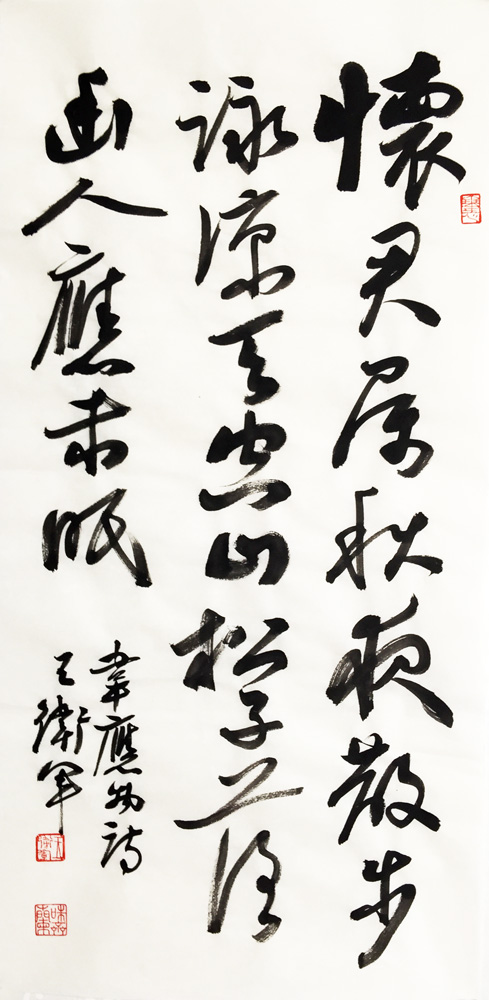 懷君屬秋夜散步
詠涼天空山松子落
幽人應未眠
韋應物詩
王衛軍